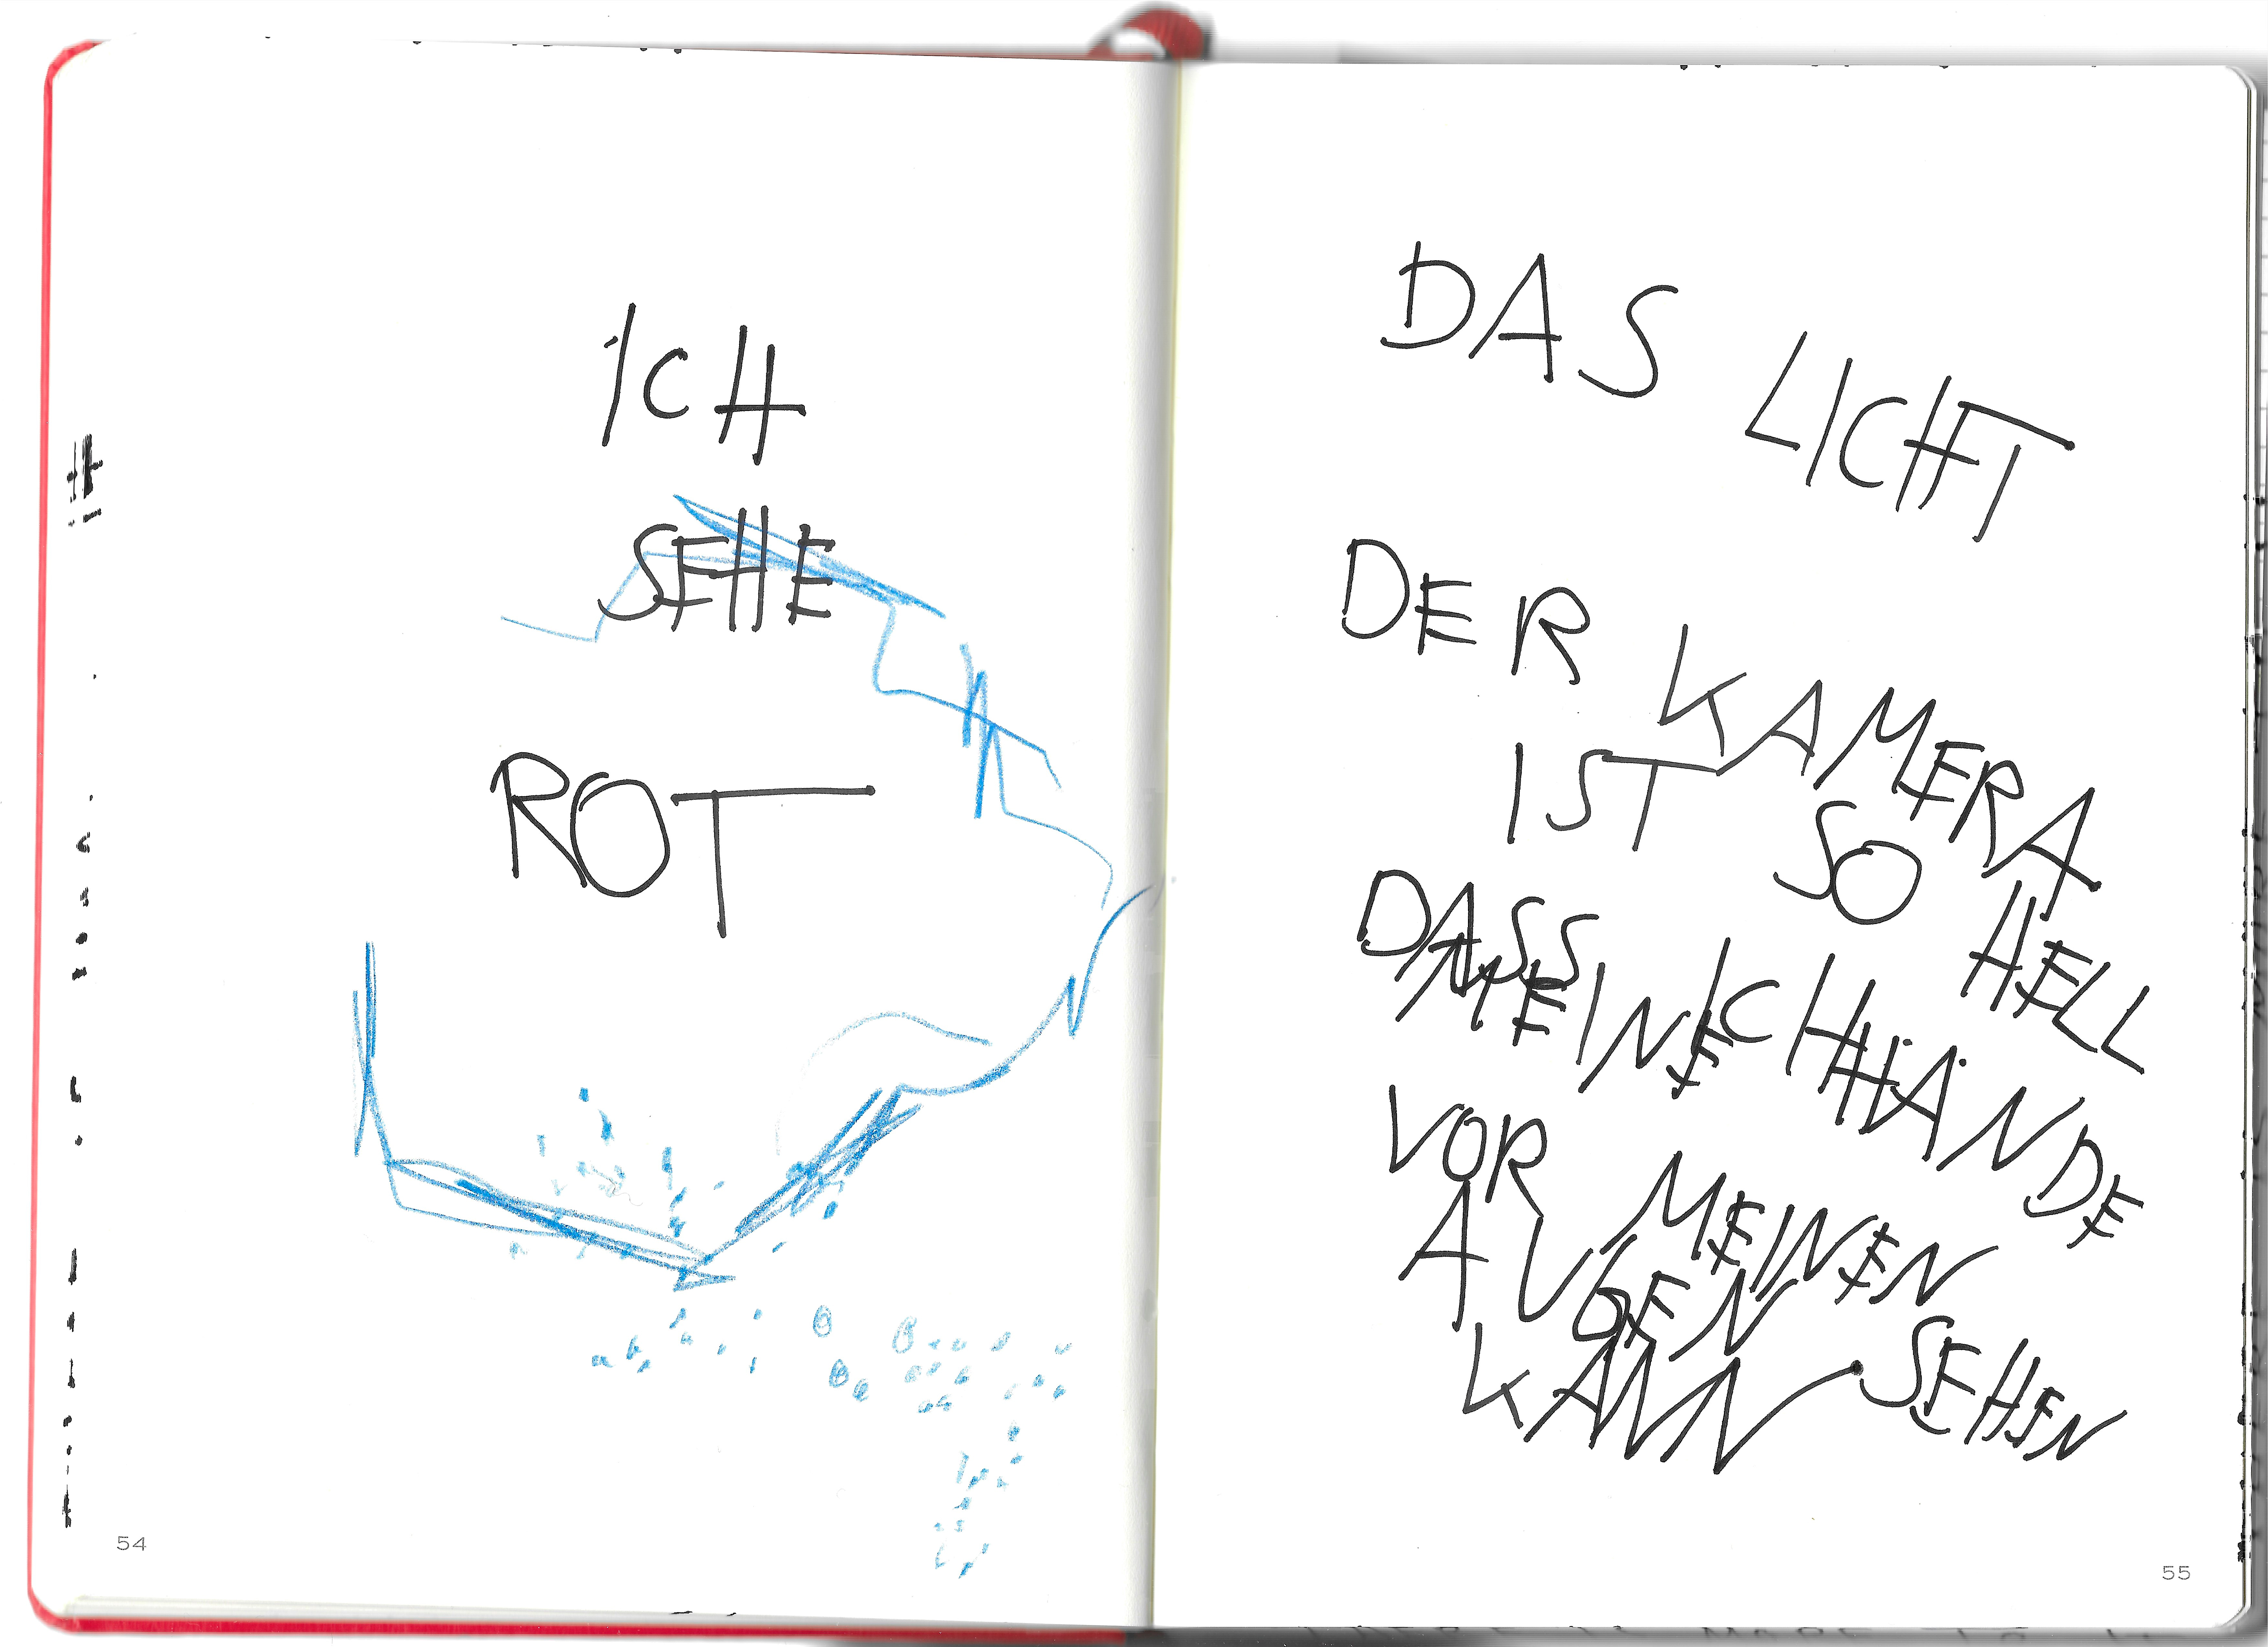 ICH
SEHE
ROT
54
DAS LICHT
DER KAMERA
IST SO HELL
DASS ICH
MEINE HÄNDE
VOR MEINEN
AUGEN
KANN SEHEN
55